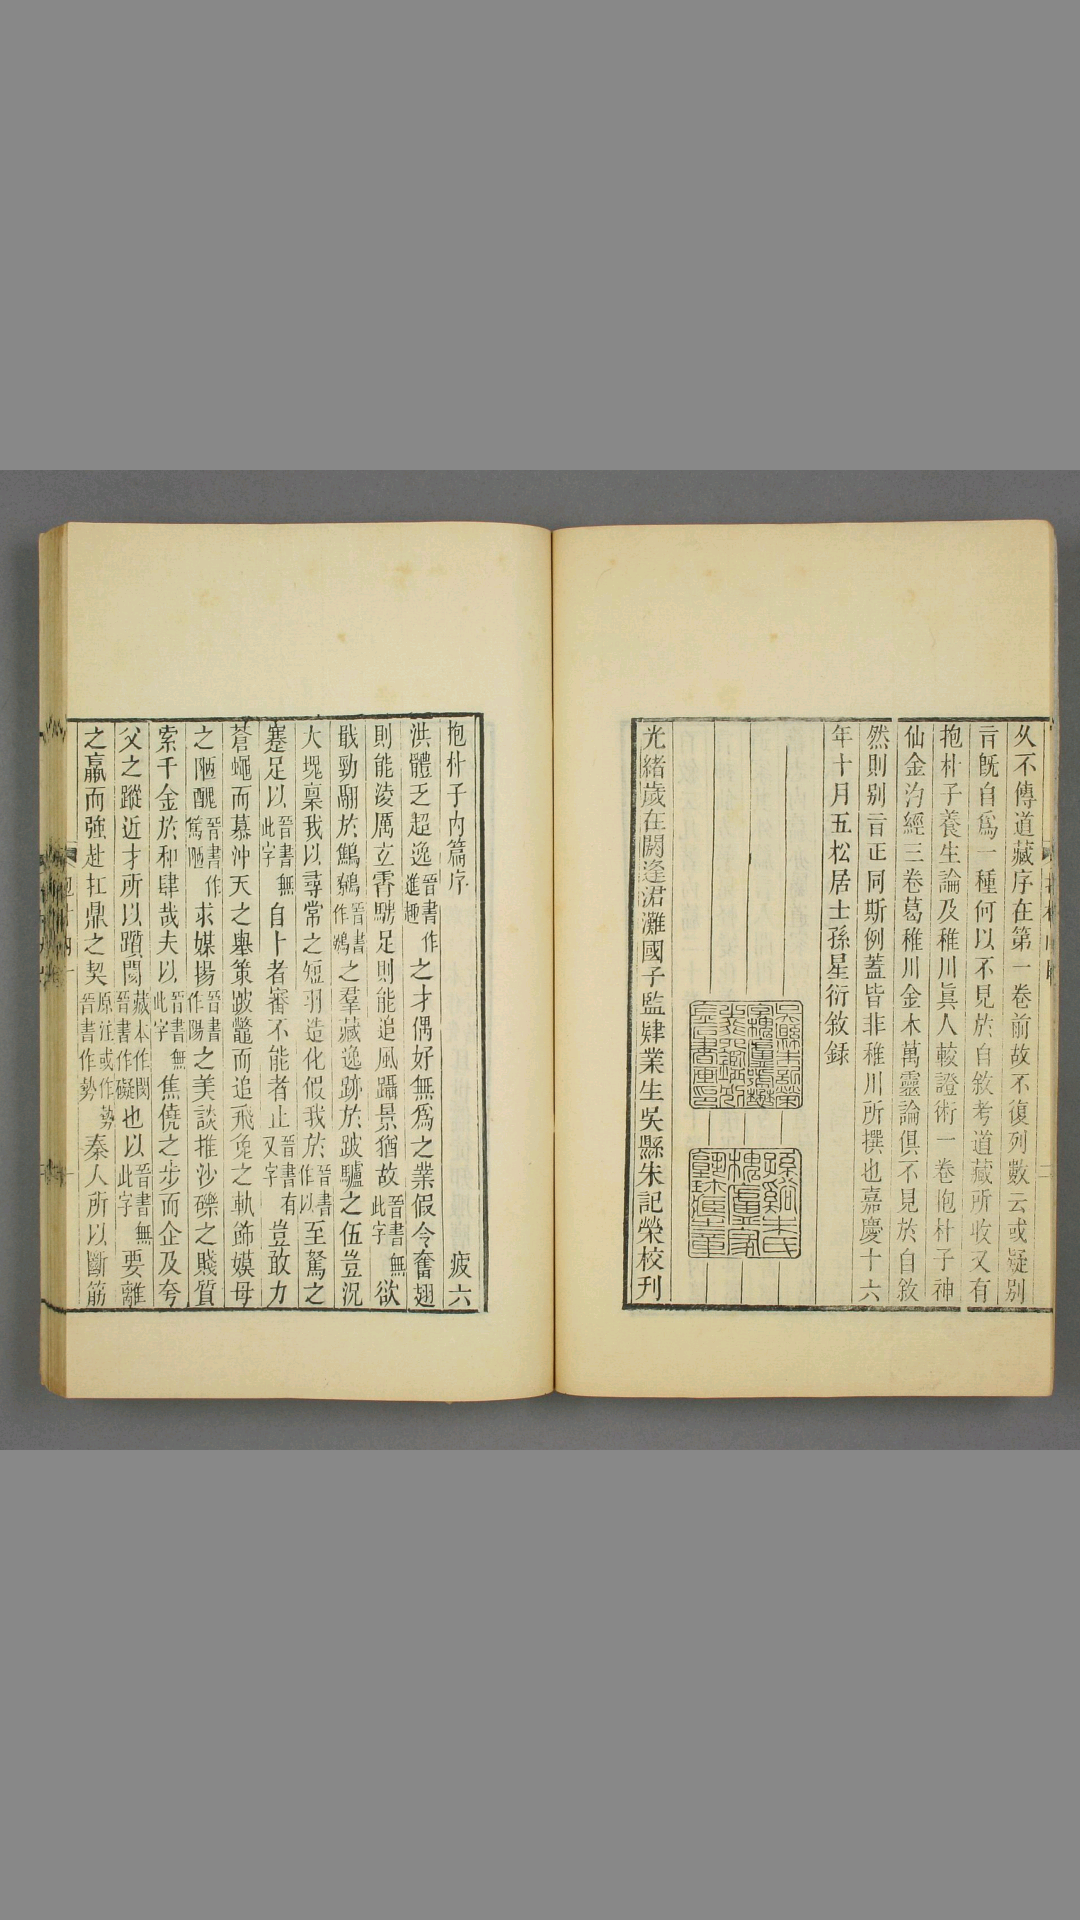 久不傳道藏序在第一卷前故不復列數云或疑別
言旣自爲一種何以不見於自敘考道藏所收又有
抱朴子養生論及稚川眞人較證術一卷抱朴子神
仙金汋經三卷葛稚川金木萬靈論俱不見於自敘
然則別言正同斯例蓋皆非稚川所撰也嘉慶十六
年十月五松居士孫星衍敘錄
光緒歲在閼逢涒灘國子監肄業生吳縣朱記榮校刊
抱朴子內篇序 疲六
洪體乏超逸晉書作進趣之才偶好無爲之業假令奮翅
則能淩厲玄霄騁足則能追風躡景猶故晉書無此字欲
戢勁翮於鷦鷃晉書作鷃之羣藏逸跡於跛驢之伍豈況
大塊稟我以尋常之短羽造化假我於晉書作以至駑之
蹇足以晉書無此字自卜者審不能者止晉書有又字豈敢力
蒼蠅而慕沖天之舉策跛鼈而追飛兔之軌飾嫫母
之陋醜晉書作篤陋求媒揚晉書作陽之美談推沙礫之賤質
索千金於和肆哉夫以晉書無此字焦僥之步而企及夸
父之蹤近才所以躓閡藏本作閡晉書作礙也以晉書無此字要離
之羸而強赴扛鼎之契原注或作勢晉書作勢秦人所以斷筋